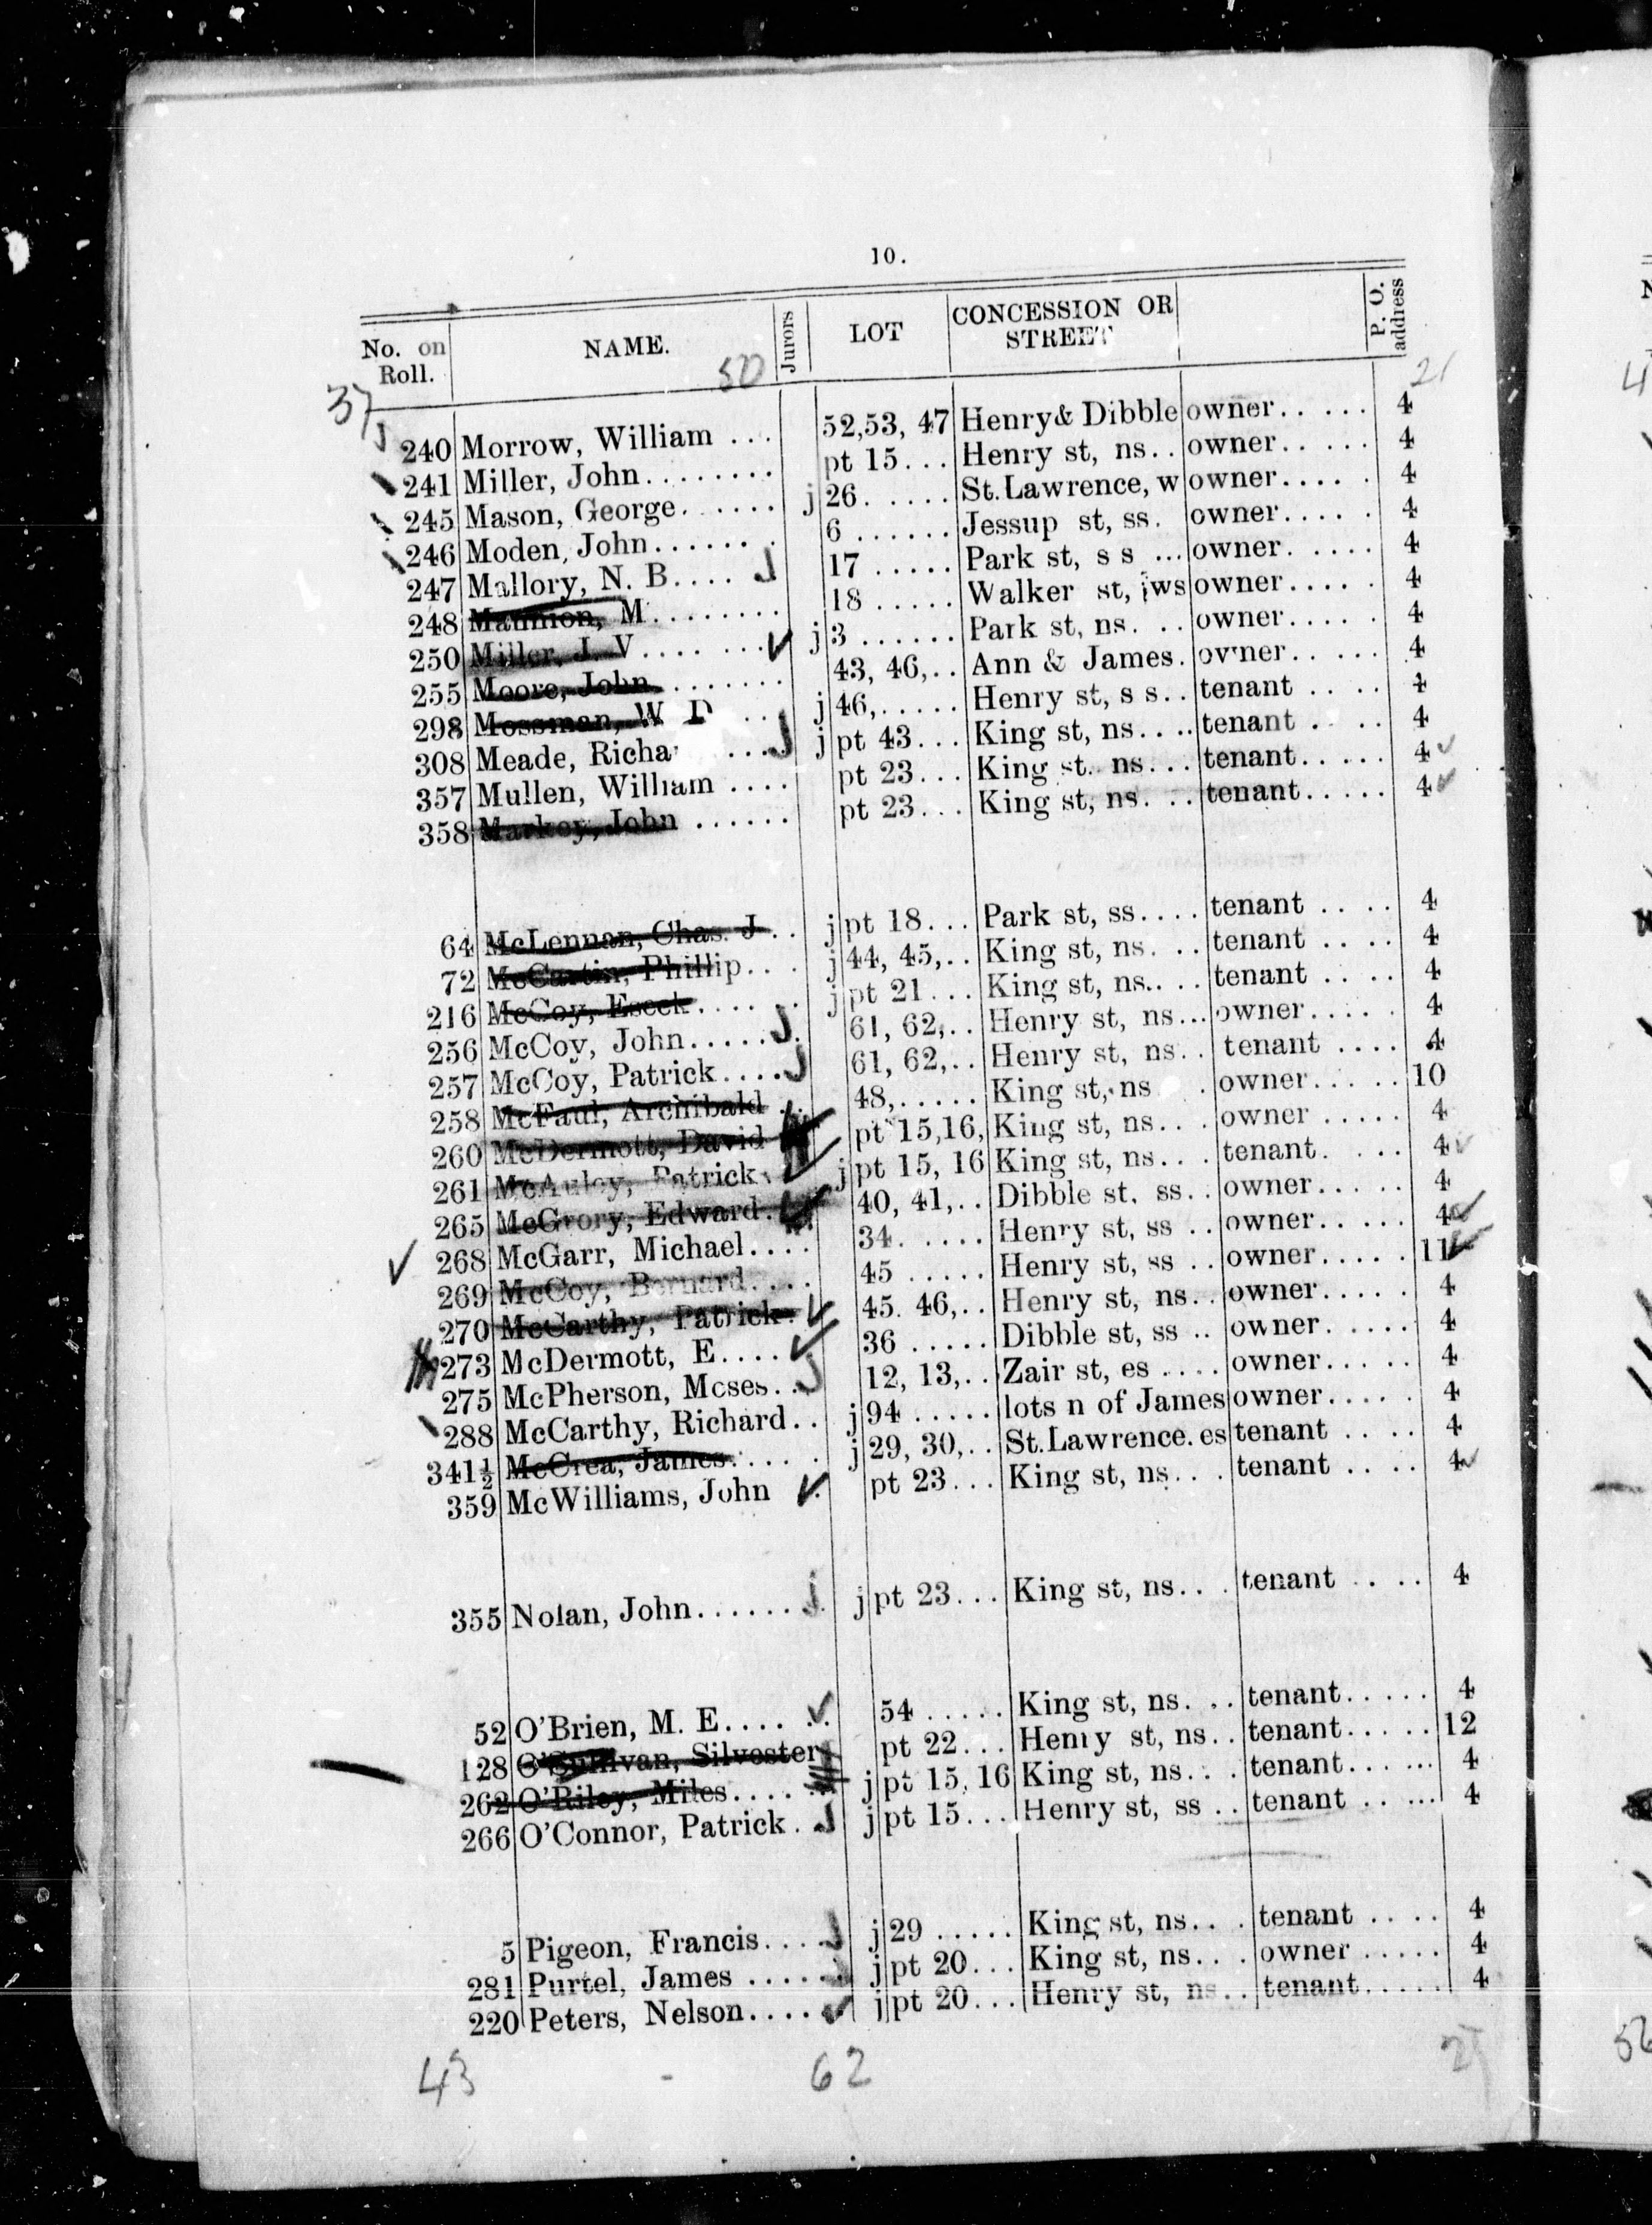 10.
No. on Roll. NAME. Jurors LOT CONCESSION OR STREET P. O. address
37 50 21
240 Morrow, William ... 52,53, 47 Henry & Dibble owner..... 4
241 Miller, John........ pt 15... Henry st, ns.. owner..... 4
245 Mason, George...... j 26..... St. Lawrence, w owner..... 4
246 Moden, John....... 6 ...... Jessup st, ss. owner..... 4
247 Mallory, N. B.... J 17 ..... Park st, s s ... owner..... 4
248 Mannion, M........ 18 ..... Walker st, ws owner..... 4
250 Miller, J. V....... ✓ j 3 ...... Park st, ns. .. owner..... 4
255 Moore, John....... 43, 46,.. Ann & James. owner..... 4
298 Mossman, W. D .. j 46,..... Henry st, s s.. tenant .... 4
308 Meade, Richa ... J j pt 43... King st, ns.... tenant .... 4
357 Mullen, William .... pt 23... King st. ns... tenant..... 4 ✓
358 Markey, John ...... pt 23... King st, ns. .. tenant..... 4 ✓
64 McLennan, Chas. J.. j pt 18... Park st, ss.... tenant .... 4
72 McCartin, Phillip... j 44, 45,.. King st, ns. .. tenant .... 4
216 McCoy, Eseek...... j pt 21... King st, ns.... tenant .... 4
256 McCoy, John..... J 61, 62,.. Henry st, ns... owner..... 4
257 McCoy, Patrick.... J 61, 62,.. Henry st, ns.. tenant .... 4
258 McFaul, Archibald .. 48,..... King st, ns . owner..... 10
260 McDermott, David pt 15,16, King st, ns... owner ..... 4
261 McAuley, Patrick ✓ j pt 15, 16 King st, ns... tenant..... 4 ✓
265 McGrory, Edward. ✓ 40, 41,.. Dibble st. ss.. owner..... 4
✓ 268 McGarr, Michael.... 34...... Henry st, ss .. owner..... 4 ✓
269 McCoy, Bernard.... 45 ..... Henry st, ss .. owner..... 11 ✓
270 McCarthy, Patrick. ✓ 45. 46,.. Henry st, ns.. owner..... 4
273 McDermott, E.... ✓ 36 ..... Dibble st, ss .. owner..... 4
275 McPherson, Moses.. J 12, 13,.. Zair st, es .... owner..... 4
288 McCarthy, Richard.. j 94 ..... lots n of James owner..... 4
341½ McCrea, James..... j 29, 30,.. St. Lawrence. es tenant .... 4
359 McWilliams, John ✓ pt 23... King st, ns... tenant .... 4 ✓
355 Nolan, John...... J j pt 23... King st, ns... tenant .... 4
52 O'Brien, M. E.... ✓ 54 ..... King st, ns. .. tenant..... 4
128 O'Sullivan, Silvester pt 22... Henry st, ns.. tenant..... 12
262 O'Riley, Miles.... j pt 15, 16 King st, ns... tenant...... 4
266 O'Connor, Patrick. J j pt 15... Henry st, ss .. tenant ..... 4
5 Pigeon, Francis.... J j 29 ..... King st, ns... tenant .... 4
281 Purtel, James .... J j pt 20... King st, ns... owner ..... 4
220 Peters, Nelson.... ✓ j pt 20... Henry st, ns.. tenant..... 4
43 - 62